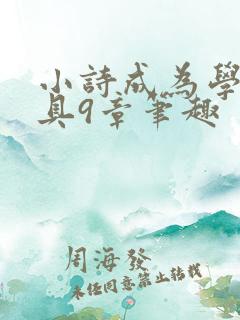 小詩成為學
具9章筆趣
周海發
未經同意禁止轉載